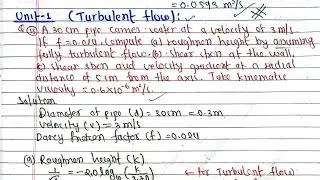 = 0.0593 m³/s
Unit-1 (Turbulent flow):-
Q. A 30cm pipe carries water at a velocity of 3m/s
If f = 0.024, compute (a) roughness height by assuming
fully turbulent flow. (b) shear stress at the wall.
(c) shear stress and velocity gradient at a radial
distance of 5cm from the axis. Take kinematic
viscosity = 0.6×10⁻⁶ m²/s.
Solution
Diameter of pipe (d) = 30cm = 0.3m
Velocity (v) = 3m/s
Darcy friction factor (f) = 0.024
(a) Roughness height (k)
= -2.0 log₁₀ ← for Turbulent